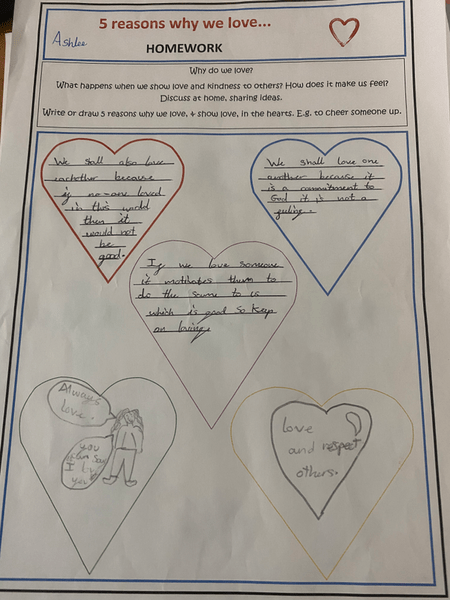 5 reasons why we love...
Ashlee
HOMEWORK
Why do we love?
What happens when we show love and kindness to others? How does it make us feel?
Discuss at home, sharing ideas.
Write or draw 5 reasons why we love, & show love, in the hearts. E.g. to cheer someone up.
We shall also love
eachother because
if no-one loved
in this world
then it
would not
be
good.
We shall love one
another because it
is a commitment to
God it is not a
feeling.
If we love someone
it motivates them to
do the same to us
which is good so keep
on loving.
Always
love.
you
can say
I love
you
love
and respect
others.